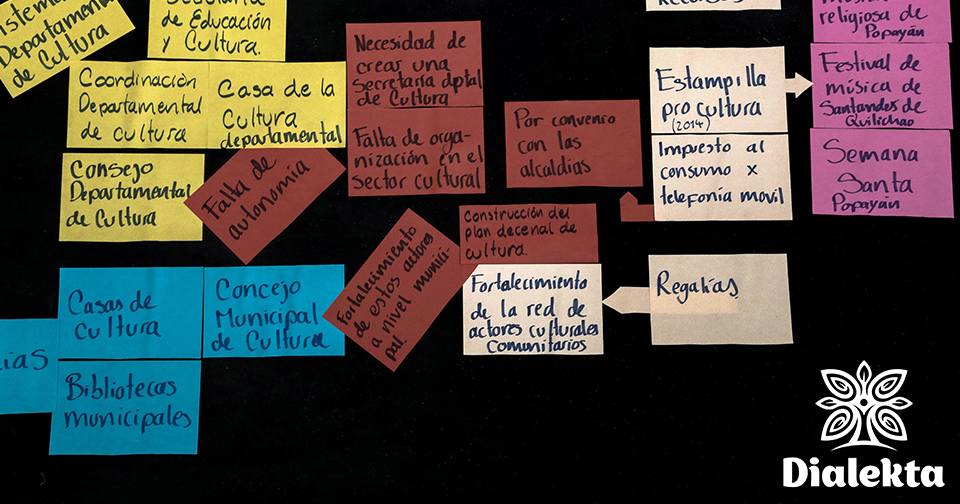 Departamental
de Cultura
de Educación
y Cultura.
Coordinación
Departamental
de cultura
Casa de la
Cultura
departamental
Consejo
Departamental
de Cultura
Falta de
autonomía
Necesidad de
crear una
Secretaría dptal
de Cultura
Falta de orga-
nización en el
sector cultural
Por convenio
con las
alcaldías
Construcción del
plan decenal de
cultura.
Fortalecimiento
de estos actores
a nivel munici-
pal.
Fortalecimiento
de la red de
actores culturales
Comunitarios
Estampilla
pro cultura
(2014)
Impuesto al
consumo x
telefonía movil
Regalías
religiosa de
Popayán
Festival de
música de
Santander de
Quilichao
Semana
Santa
Popayán
Casas de
cultura
Concejo
Municipal
de Cultura
Bibliotecas
municipales
Dialekta